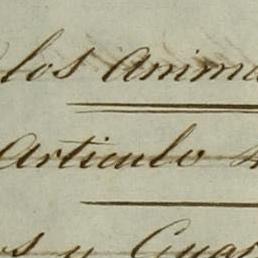 los Anima
Articulo
y Guar